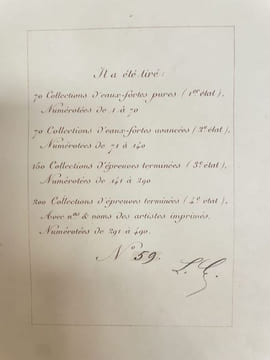 Il a été tiré:
70 Collections d'eaux-fortes pures (1er état),
Numérotées de 1 à 70
70 Collections d'eaux-fortes avancées (2e état),
Numérotées de 71 à 140
150 Collections d'épreuves terminées (3e état),
Numérotées de 141 à 290
200 Collections d'épreuves terminées (4e état),
Avec nos & noms des artistes imprimés,
Numérotées de 291 à 490.
No 59.